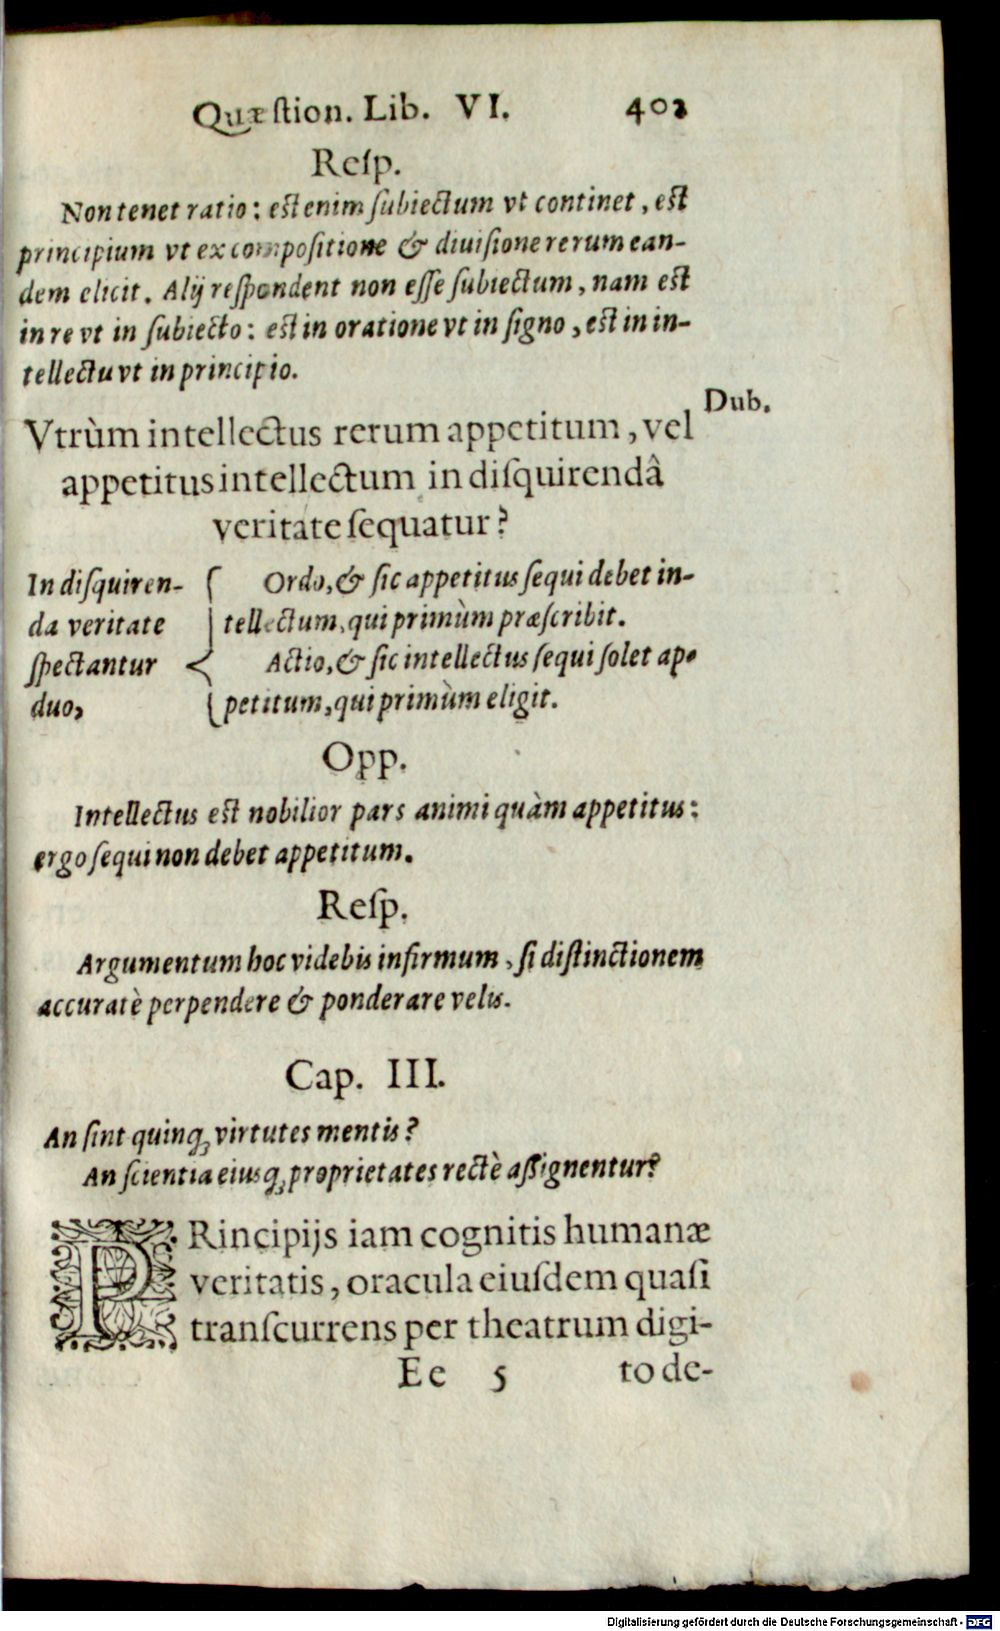 Quæſtion. Lib. VI. 402
Reſp.
Non tenet ratio: est enim ſubiectum vt continet, est
principium vt ex compoſitione & diuiſione rerum ean-
dem elicit. Alij reſpondent non eſſe ſubiectum, nam est
in re vt in ſubiecto: est in oratione vt in ſigno, est in in-
tellectu vt in principio.
Dub.
Vtrùm intellectus rerum appetitum, vel
appetitus intellectum in diſquirendâ
veritate ſequatur?
In diſquiren-
da veritate
ſpectantur
duo,
Ordo, & ſic appetitus ſequi debet in-
tellectum, qui primùm præſcribit.
Actio, & ſic intellectus ſequi ſolet ap-
petitum, qui primùm eligit.
Opp.
Intellectus est nobilior pars animi quàm appetitus:
ergo ſequi non debet appetitum.
Reſp.
Argumentum hoc videbis infirmum, ſi diſtinctionem
accuratè perpendere & ponderare velis.
Cap. III.
An ſint quinq; virtutes mentis?
An ſcientia eiusq; proprietates rectè aſsignentur?
PRincipijs iam cognitis humanæ
veritatis, oracula eiuſdem quaſi
tranſcurrens per theatrum digi-
Ee 5 to de-
Digitalisierung gefördert durch die Deutsche Forschungsgemeinschaft - DFG